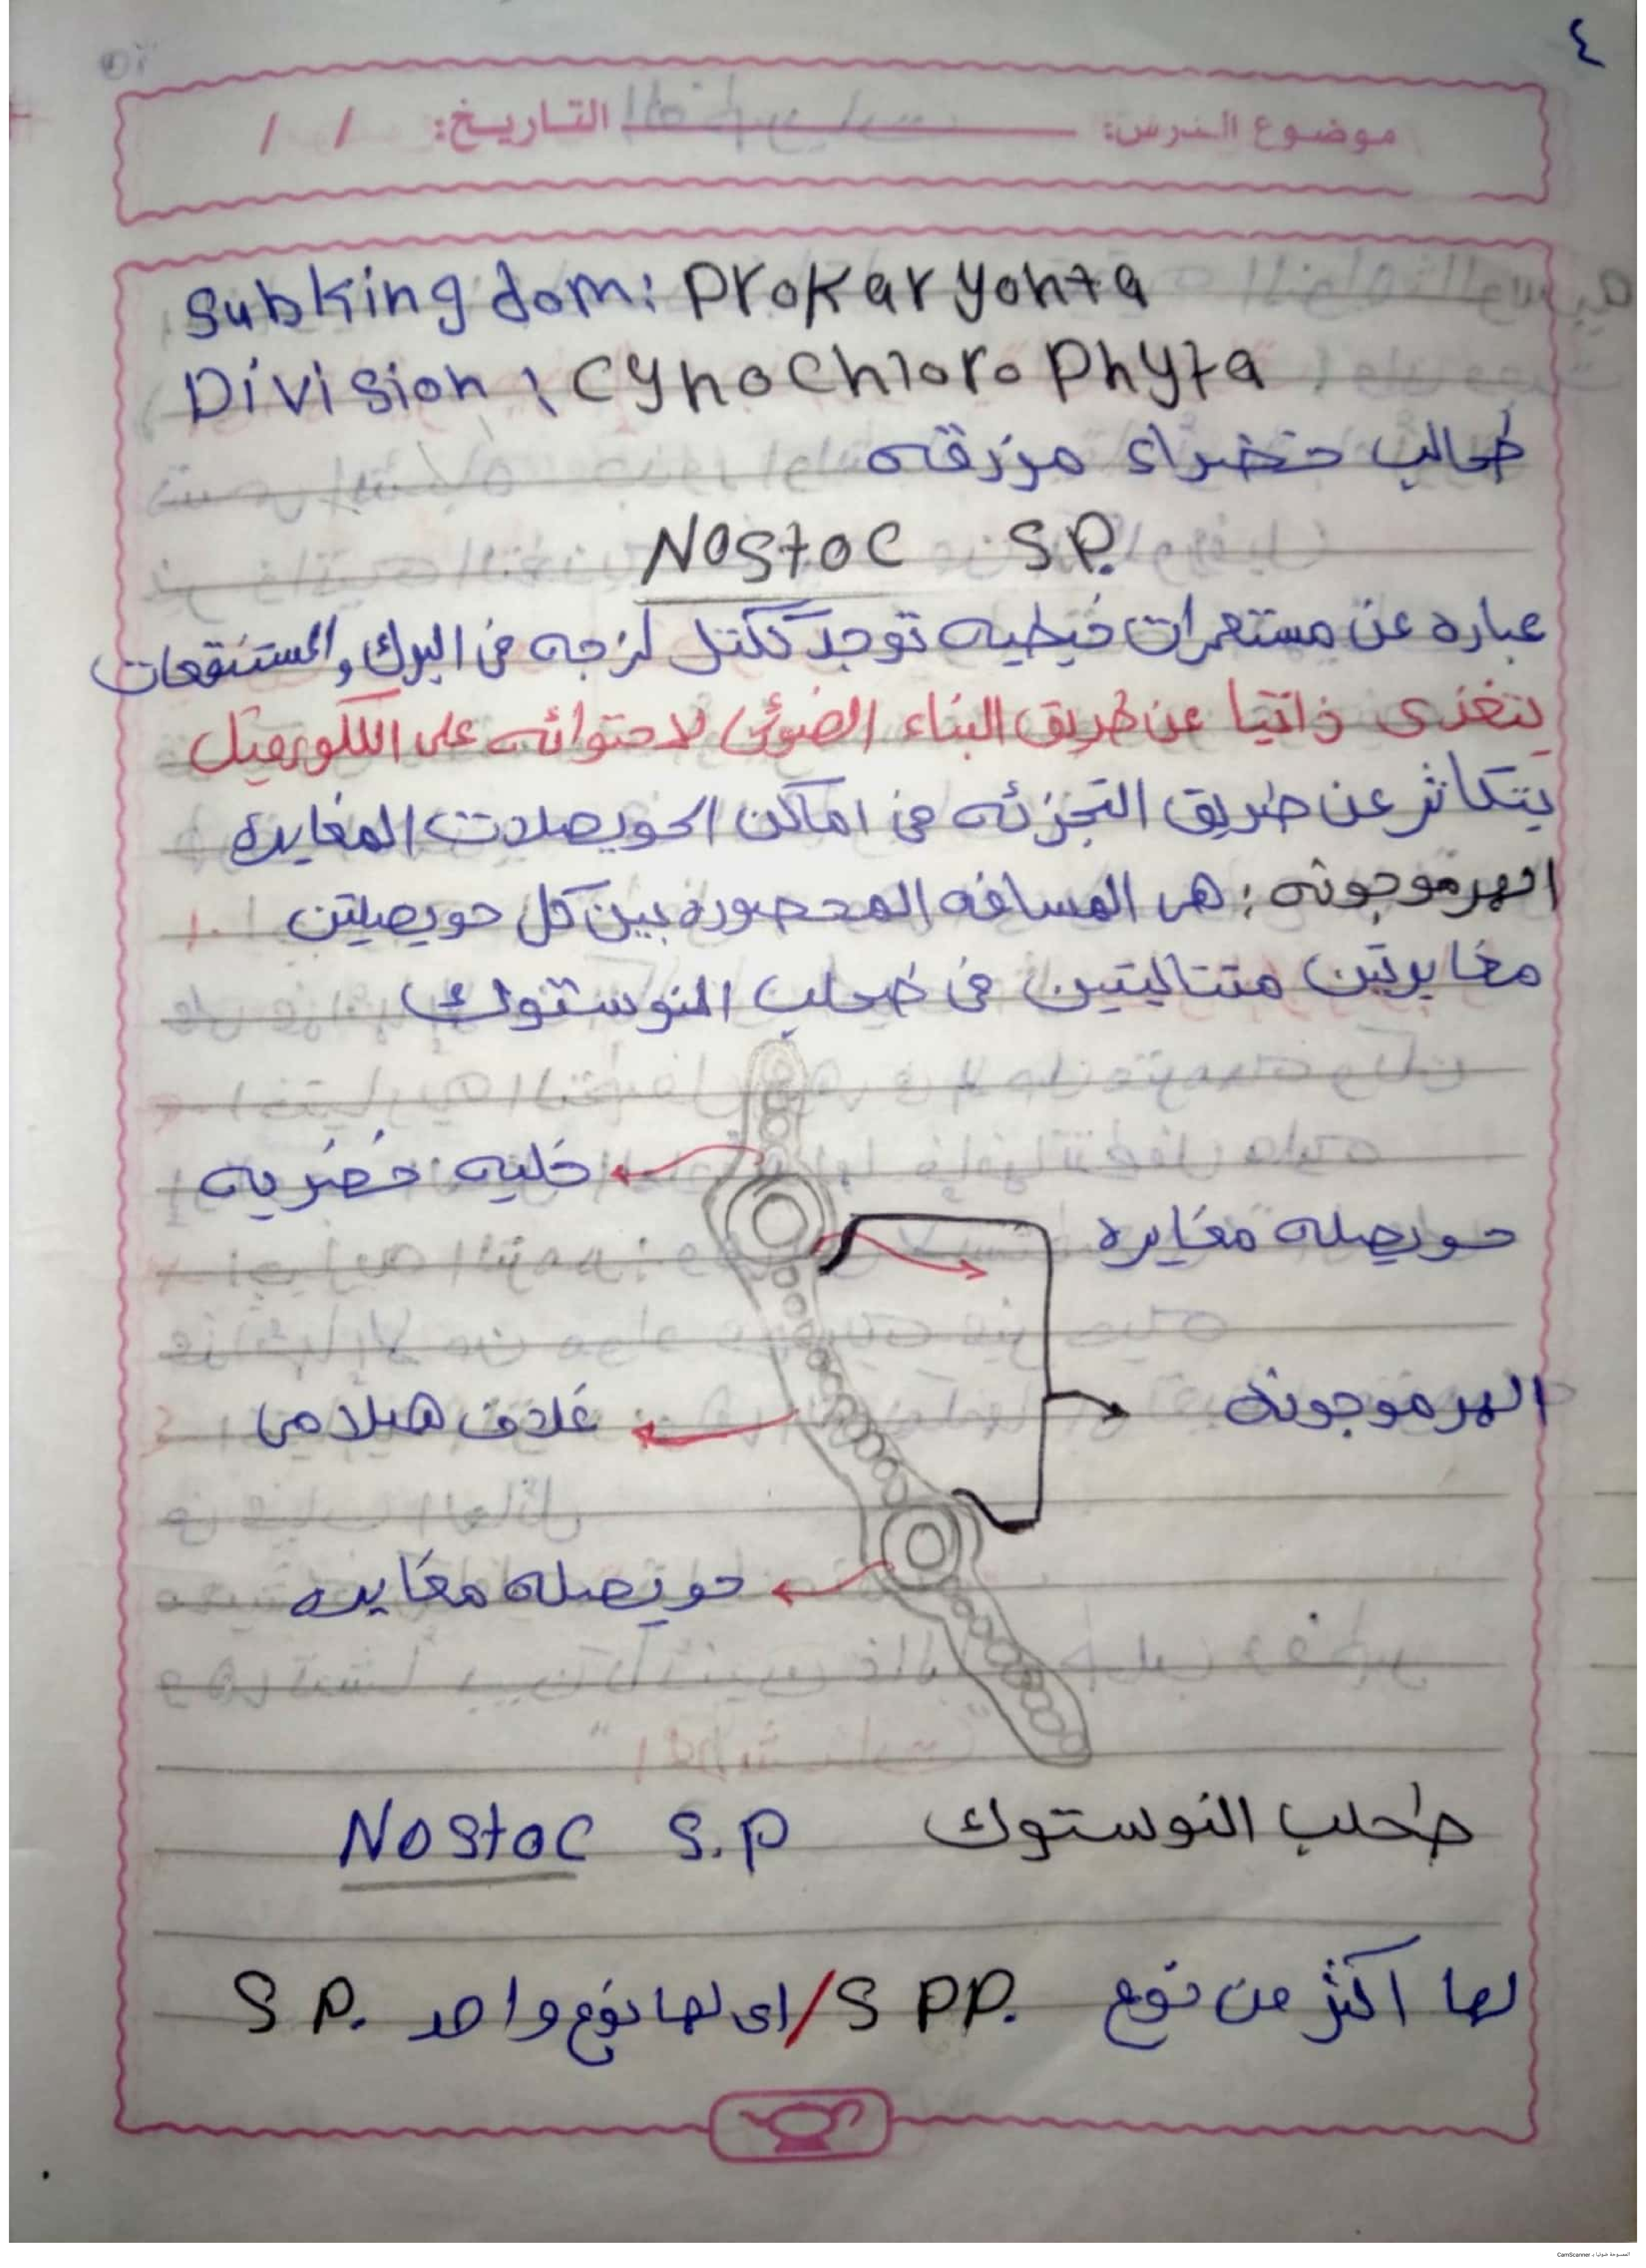 ٤
موضوع الدرس: التاريخ: / /
Subkingdom: Prokaryohta
Division: Cynochlorophyta
طحالب خضراء مزرقه
Nostoc S.P.
عباره عن مستعمرات خيطيه توجد ككتل لزجه فى البرك والمستنقعات
يتغذى ذاتيا عن طريق البناء الضوئى لاحتوائه على الكلورفيل
يتكاثر عن طريق التجزئه فى اماكن الحويصلات المغايره
الهرموجونه: هى المسافه المحصوره بين كل حويصلتين
مغايرتين متتاليتين فى طحلب النوستوك
خليه خضريه
حويصله مغايره
غلاف هيلامى
الهرموجونه
حويصله مغايره
طحلب النوستوك Nostoc S.P
لها اكثر من نوع S PP. / اى لها نوع واحد S P.
الممسوحة ضوئيا بـ CamScanner